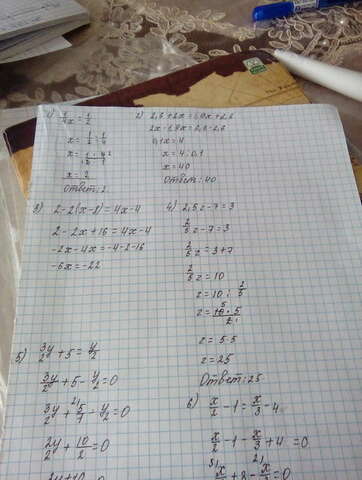 1) 1/4x = 1/2
x = 1/2 : 1/4
x = 2
Ответ: 2
2)
0,1x = 4
x = 4 : 0,1
x = 40
Ответ: 40
3) 2 - 2(x - 8) = 4x - 4
2 - 2x + 16 = 4x - 4
-2x - 4x = -4 - 2 - 16
-6x = -22
4)
2/5 z - 7 = 3
2/5 z = 3 + 7
2/5 z = 10
z = 10 : 2/5
z = 10 · 5 / 2
z = 5 · 5
z = 25
Ответ: 25
5) 3y/2 + 5 = y/2
3y/2 + 5 - y/2 = 0
3y/2 + 5/1 - y/2 = 0
2y/2 + 10/2 = 0
6) x/2 - 1 = x/3 - 4
x/2 - 1 - x/3 + 4 = 0